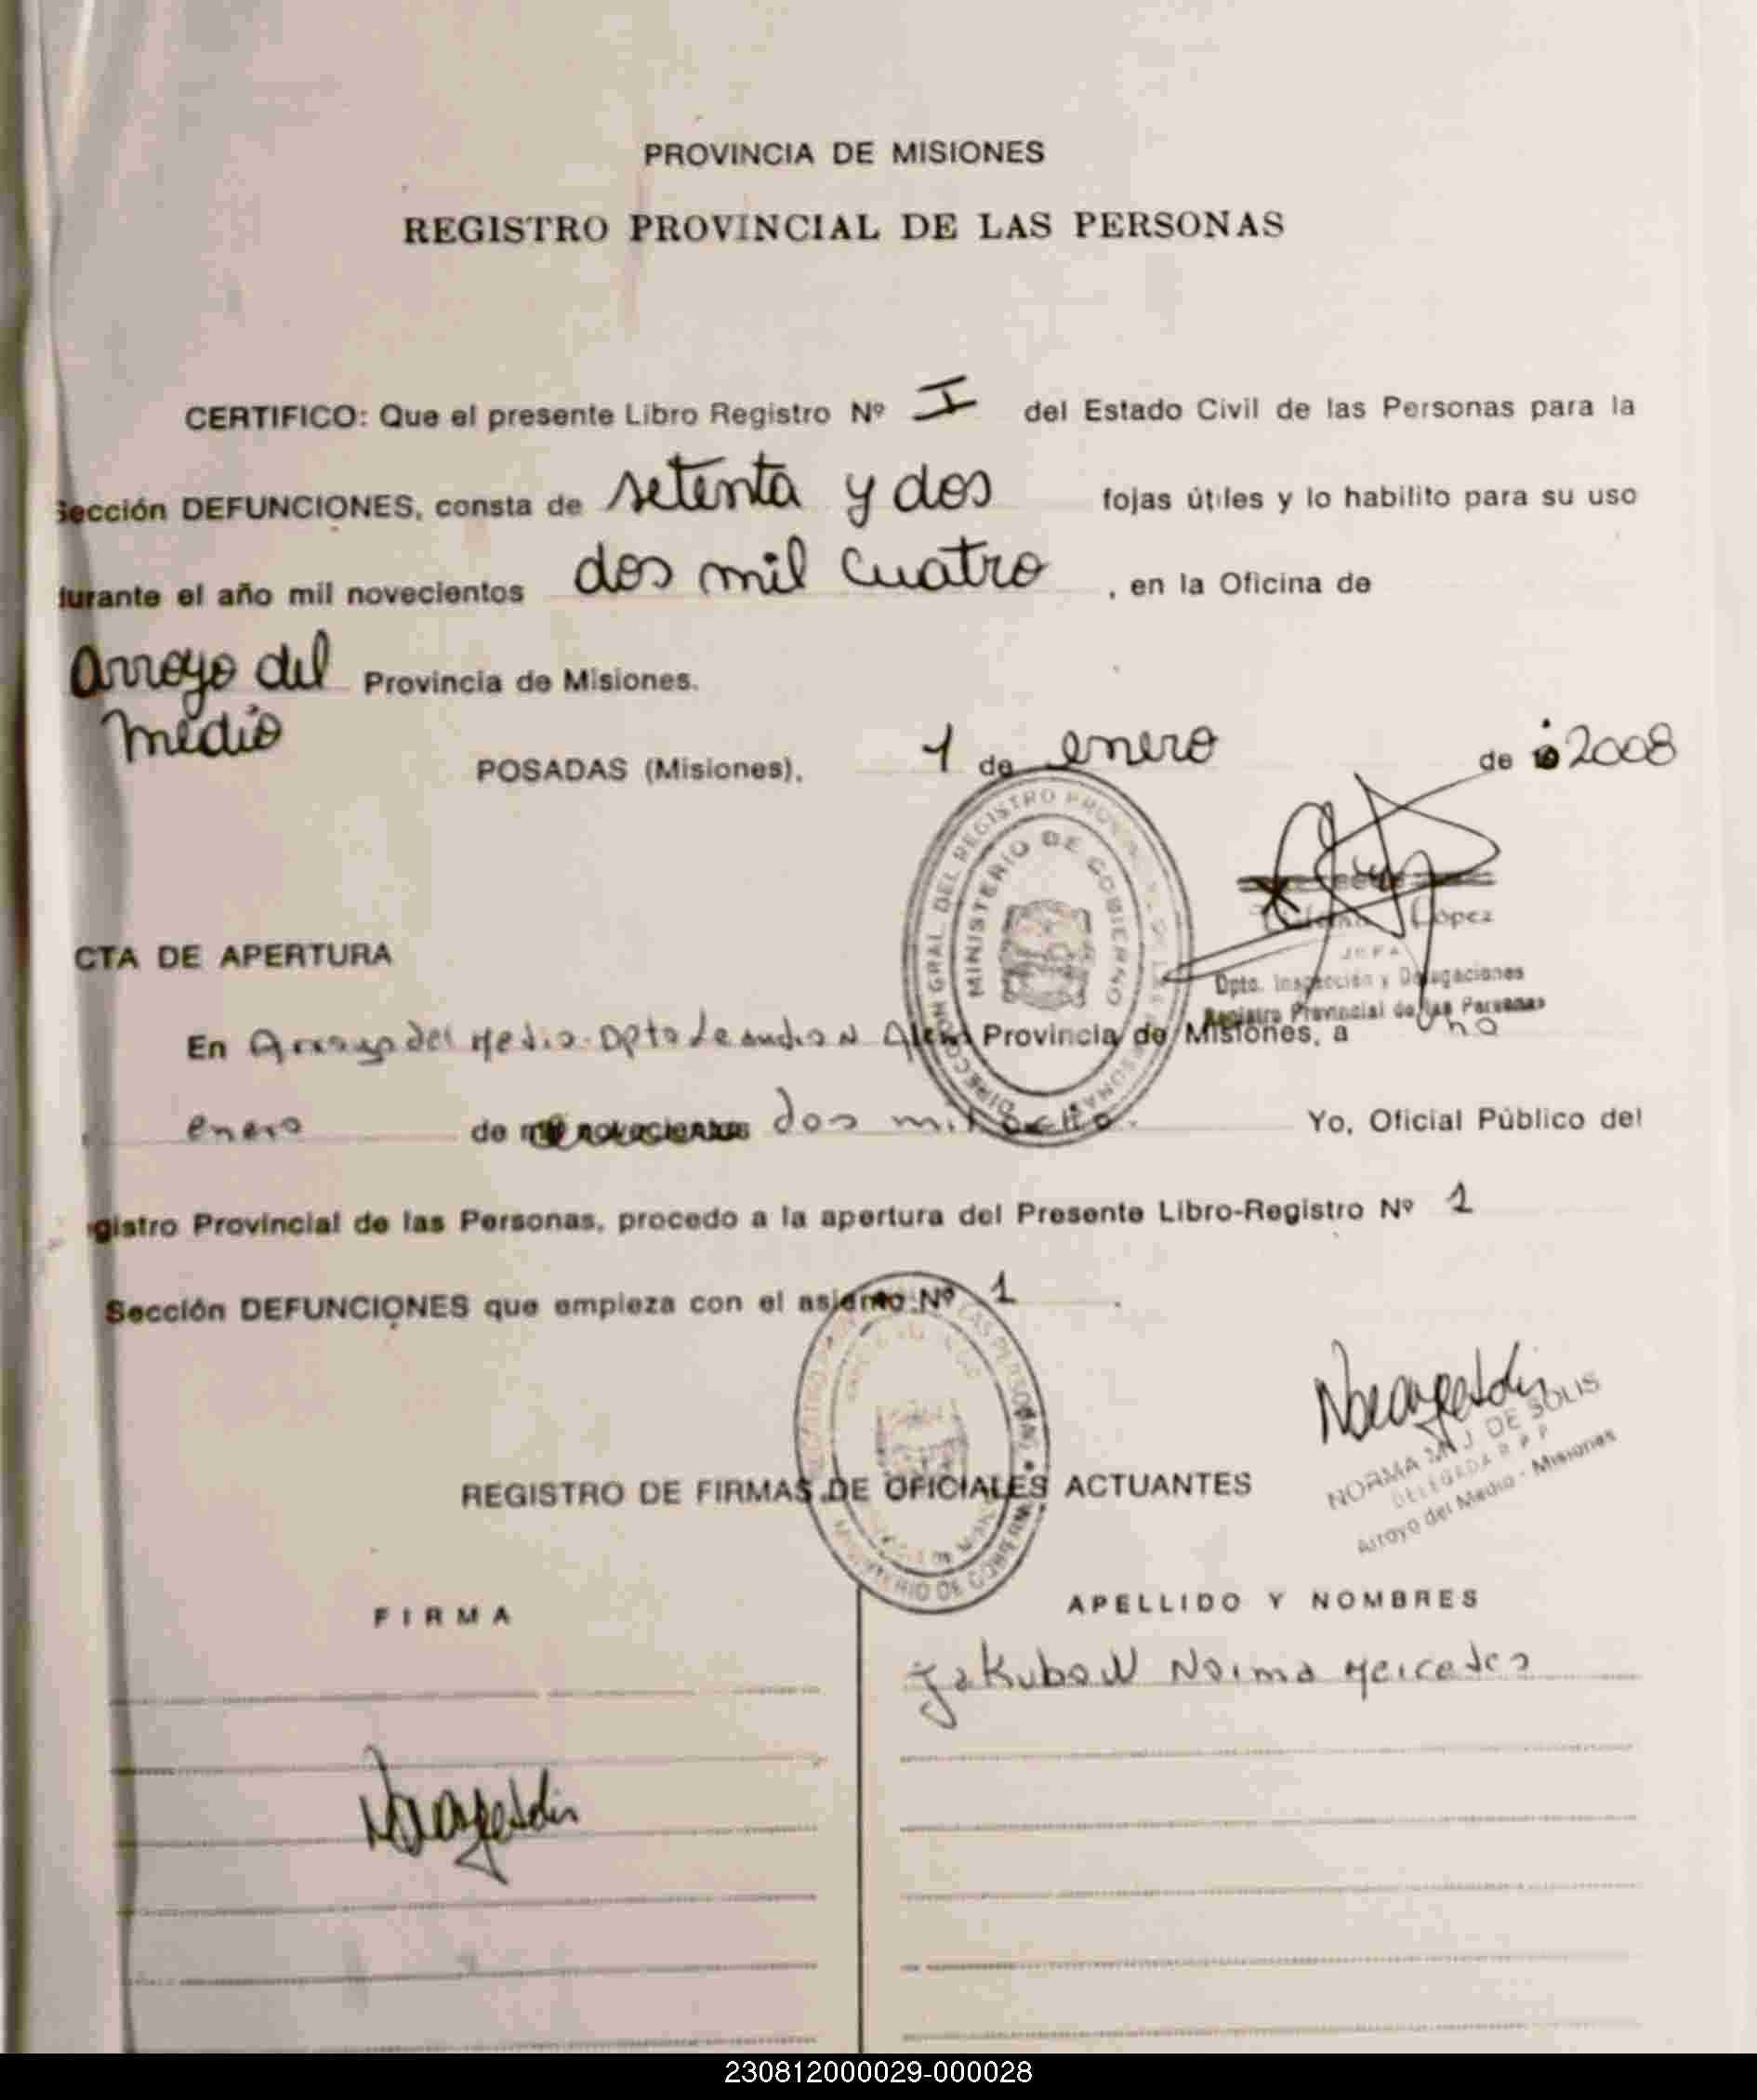 PROVINCIA DE MISIONES
REGISTRO PROVINCIAL DE LAS PERSONAS
CERTIFICO: Que el presente Libro Registro Nº I del Estado Civil de las Personas para la
Sección DEFUNCIONES, consta de setenta y dos fojas útiles y lo habilito para su uso
durante el año mil novecientos dos mil cuatro, en la Oficina de
Arroyo del Provincia de Misiones.
Medio
POSADAS (Misiones), 1 de enero de 2008
DIRECCION GRAL. DEL REGISTRO PROVINCIAL DE LAS PERSONAS
MINISTERIO DE GOBIERNO
López
JEFA
Dpto. Inspección y Delegaciones
Registro Provincial de las Personas
CTA DE APERTURA
En Arroyo del Medio - Dpto Leandro N Alem Provincia de Misiones, a uno
enero de mil novecientos dos mil ocho. Yo, Oficial Público del
gistro Provincial de las Personas, procedo a la apertura del Presente Libro-Registro Nº 1
Sección DEFUNCIONES que empieza con el asiento Nº 1.
LAS PERSONAS
MINISTERIO DE GOBIERNO
NORMA M. J DE SOLIS
DELEGADA R P P
Arroyo del Medio - Misiones
REGISTRO DE FIRMAS DE OFICIALES ACTUANTES
FIRMA
APELLIDO Y NOMBRES
Jakubow Norma Mercedes
230812000029-000028